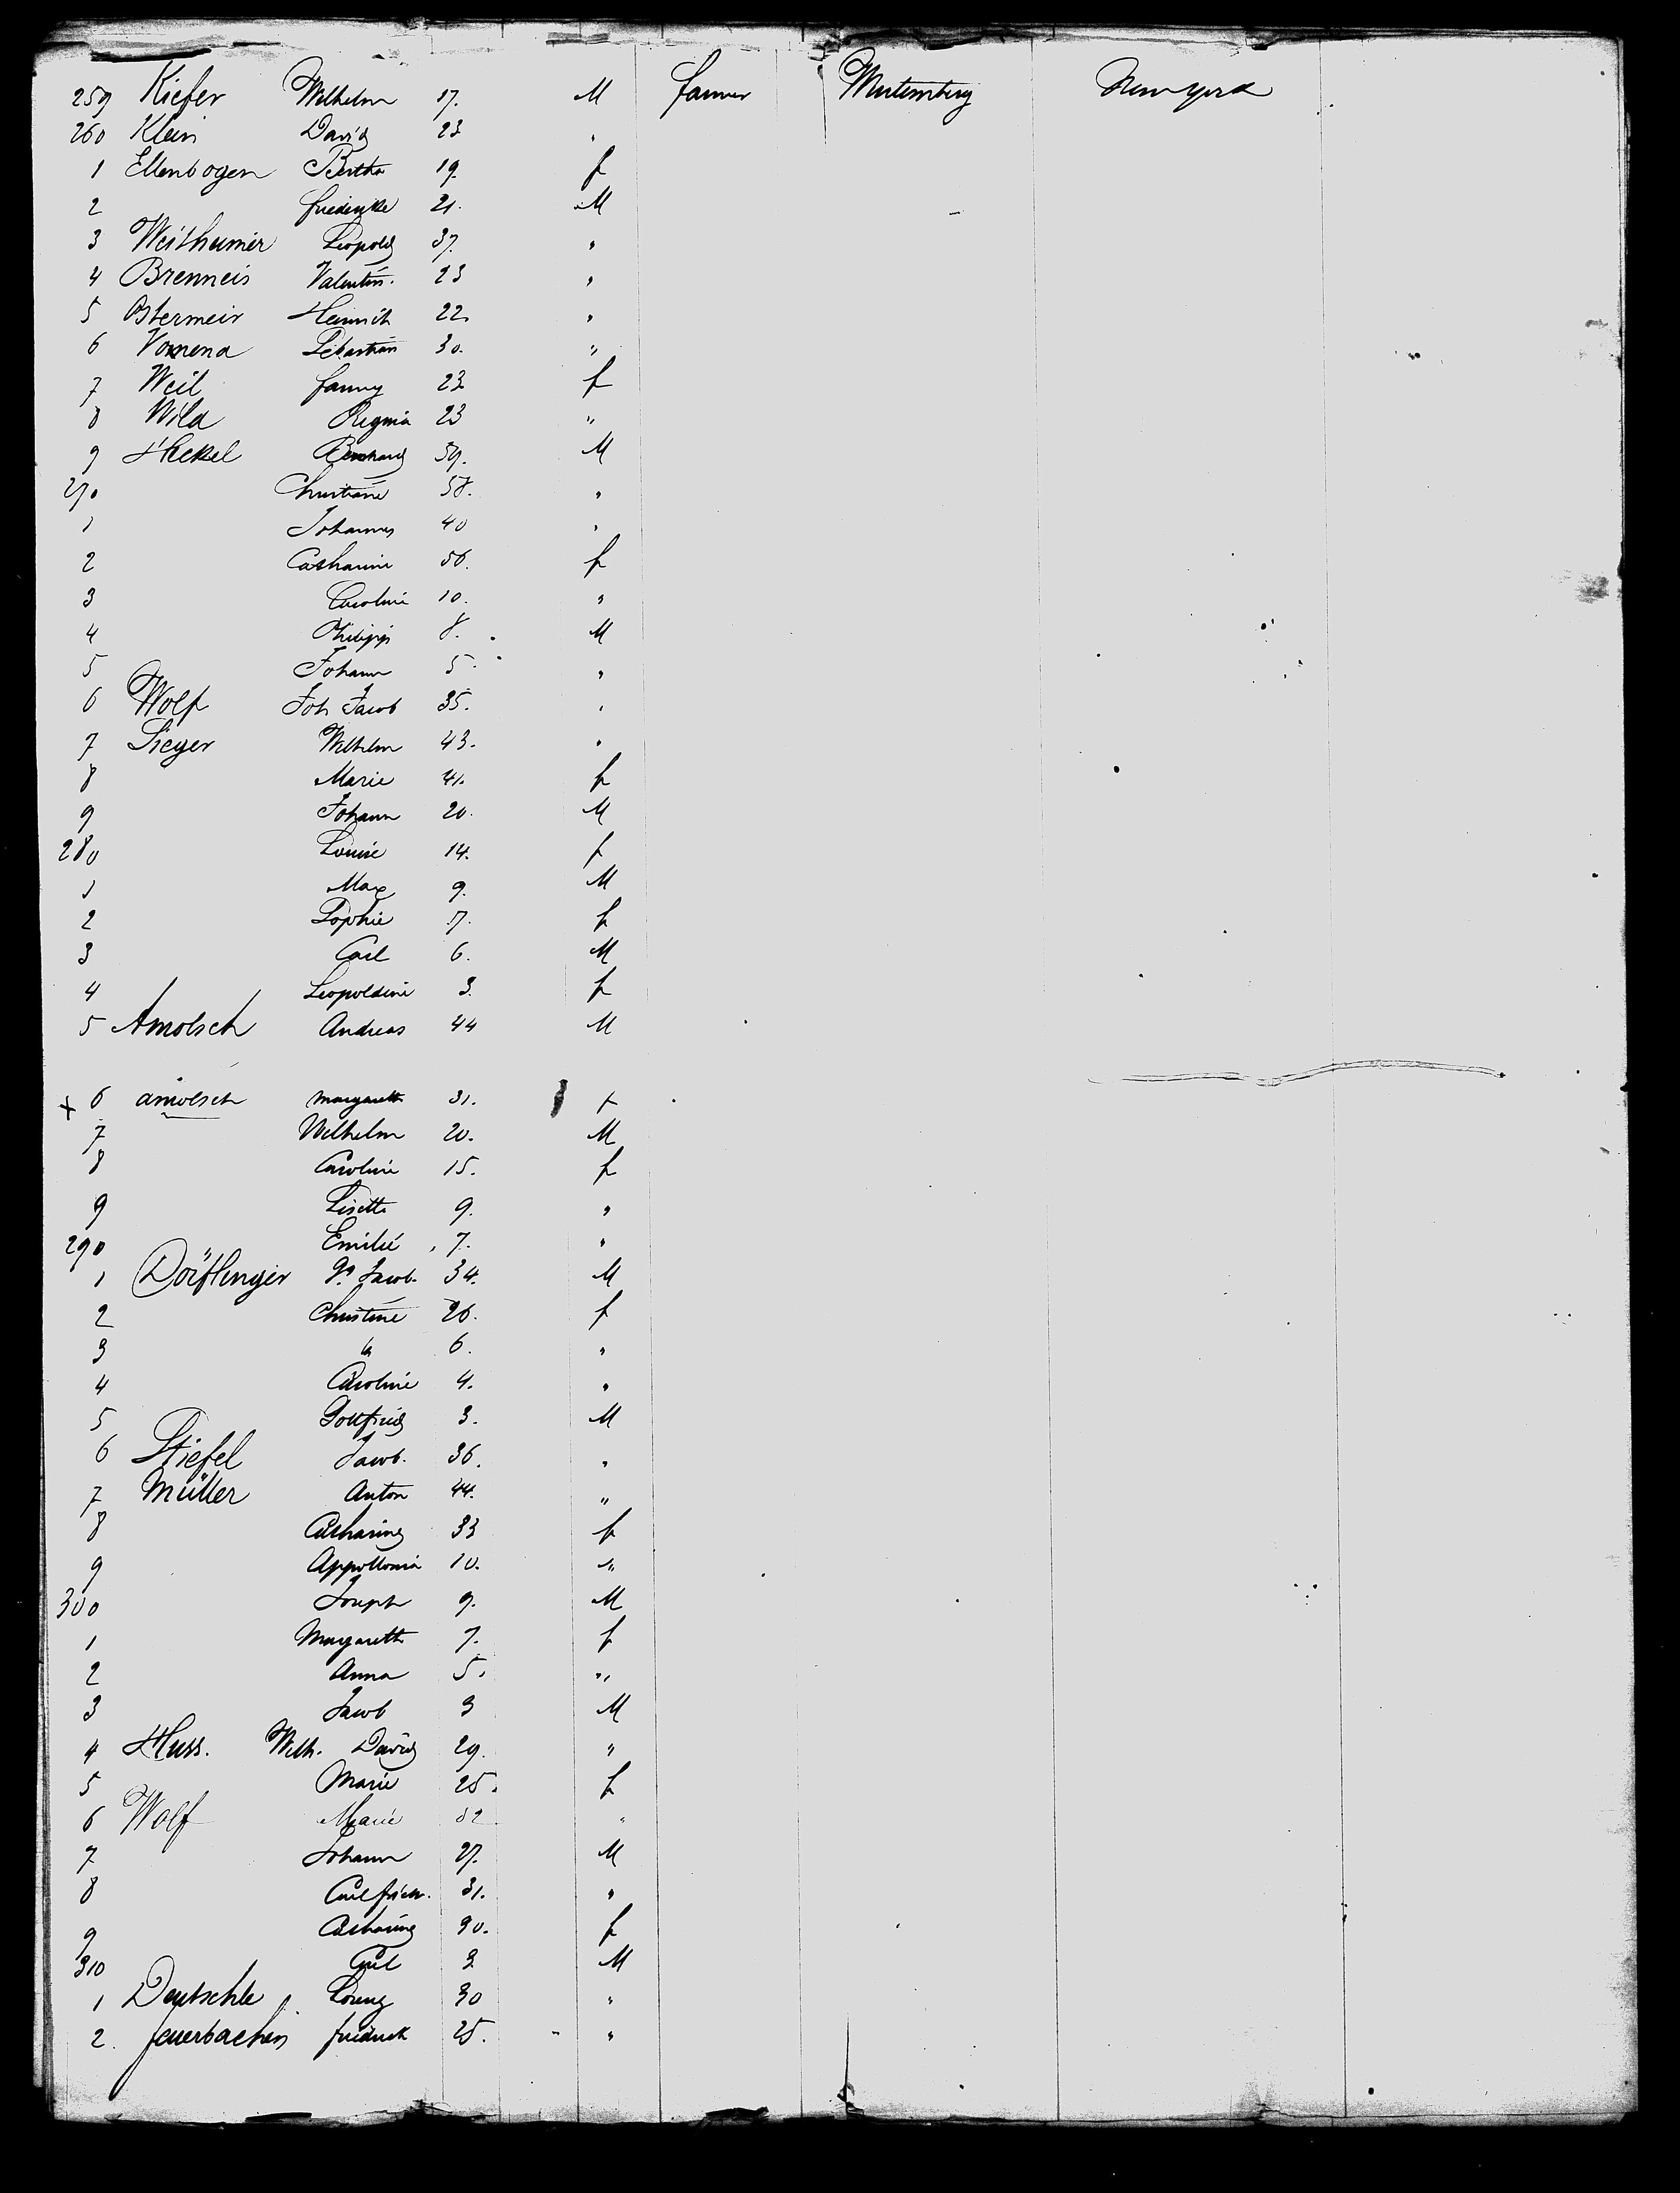 259 Kiefer Wilhelm 17. M farmer Wurtemberg New York
260 Klein David 23 "
1 Ellenbogen Bertha 19. f
2 Friedericke 21. M
3 Weithumer Leopold 37. "
4 Brenneis Valentin. 23 "
5 Ostermeir Heinrich 22. "
6 Vomena Sebastian 30. "
7 Weil fanny 23 f
8 Wild Regina 23 "
9 Heckel Bernhard 59. M
270 Christiane 58. "
1 Johannes 40 "
2 Catharine 56. f
3 Caroline 10. "
4 Philipp 8. M
5 Johann 5. "
6 Wolf Joh Jacob 35. "
7 Sieger Wilhelm 43. "
8 Marie 41. f
9 Johann 20. M
280 Louise 14. f
1 Max 9. M
2 Sophie 7. f
3 Carl 6. M
4 Leopoldine 3. f
5 Amolsch Andreas 44 M
x 6 amolsch Margareth 31. f
7 Wilhelm 20. M
8 Caroline 15. f
9 Lisette 9. "
290 Emilie 7. "
1 Döfflinger Jacob. 34. M
2 Christine 26. f
3 " 6. "
4 Caroline 4. "
5 Gottfried 3. M
6 Stiefel Jacob. 36. "
7 Müller Anton 44. "
8 Catharina 33 f
9 Appollonia 10. "
300 Joseph 9. M
1 Margareth 7. f
2 Anna 5. "
3 Jacob 3 M
4 Huss. Wilh. David 29. "
5 Marie 25. f
6 Wolf Marie "
7 Johann 27. M
8 Carl friedr. 31. "
9 Catharina 30. f
310 Carl 3 M
1 Deutschle Lorenz 30 "
2. feuerbachen friedrich 25. "